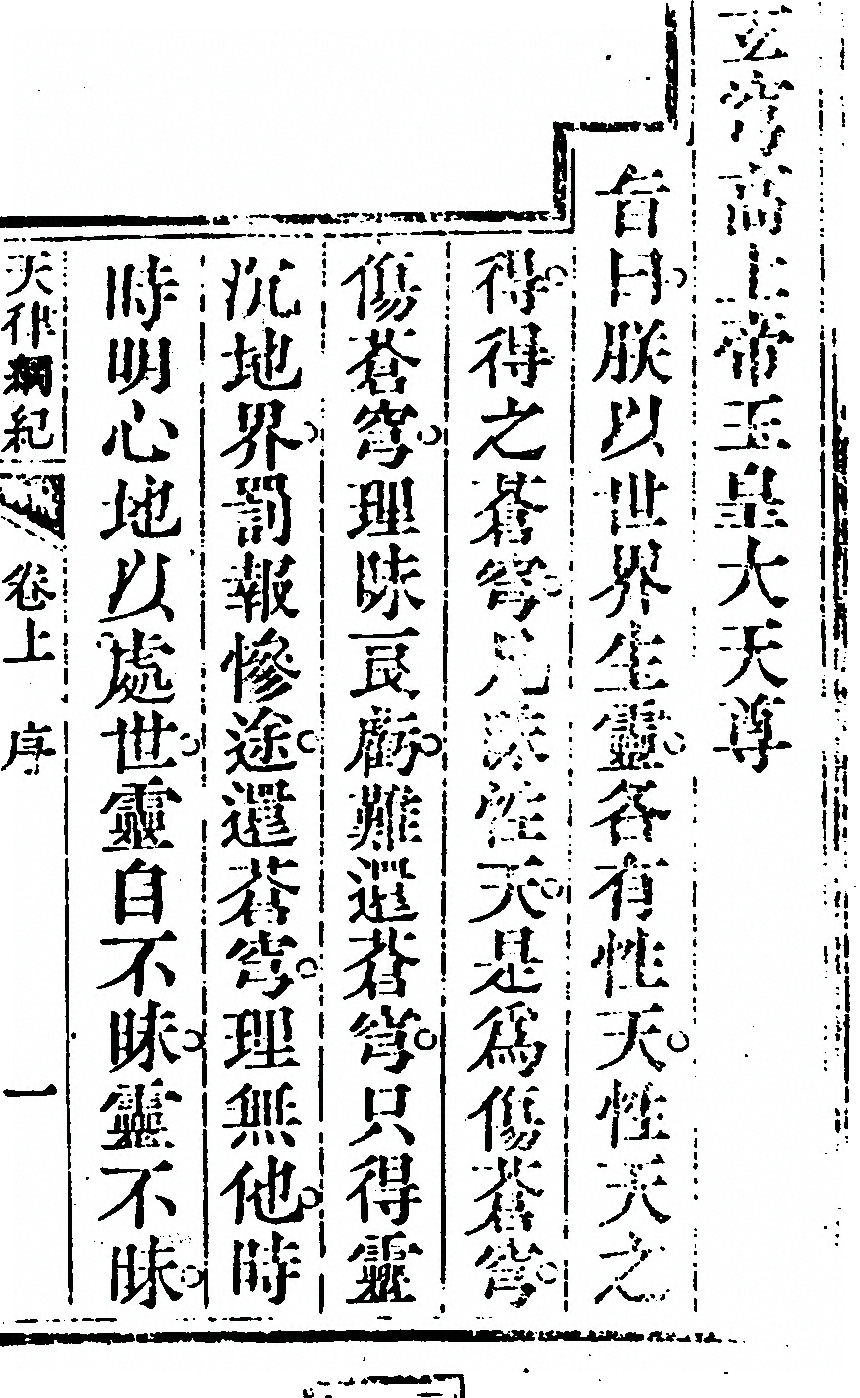 玄穹高上帝玉皇大天尊
旨曰朕以世界生靈各有性天性天之
得得之蒼穹凡昧性天是爲傷蒼穹
傷蒼穹理昧良虧難還蒼穹只得靈
沉地界罰報慘途還蒼穹理無他時
時明心地以處世靈自不昧靈不昧
天律綱紀 卷上 序 一